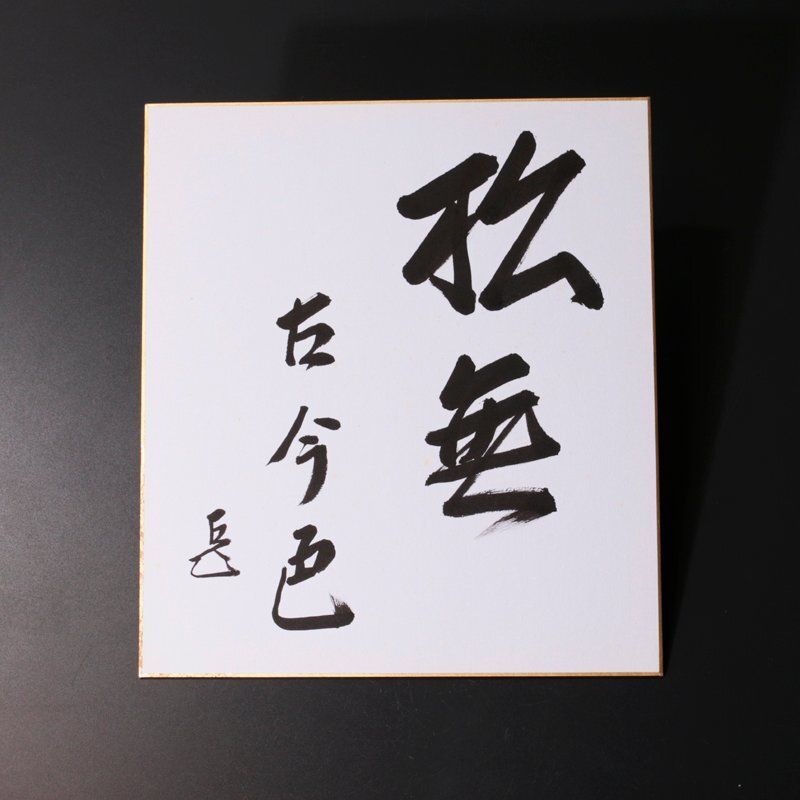 松無
古今色
岳